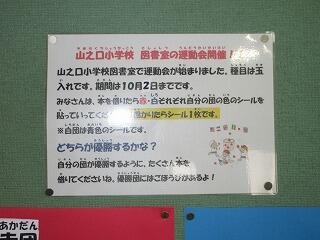 山之口小学校 図書室の運動会開催!
山之口小学校図書室で運動会が始まりました。種目は玉
入れです。期間は10月2日までです。
みなさんは、本を借りたら赤・白それぞれ自分の団の色のシールを
貼っていってください。
りたらシール1枚です。
※白団は青色のシールです。
どちらが優勝するかな?
自分の団が優勝するように、たくさん本を
借りてくださいね。優勝団にはごほうびがあるよ!
あかだん